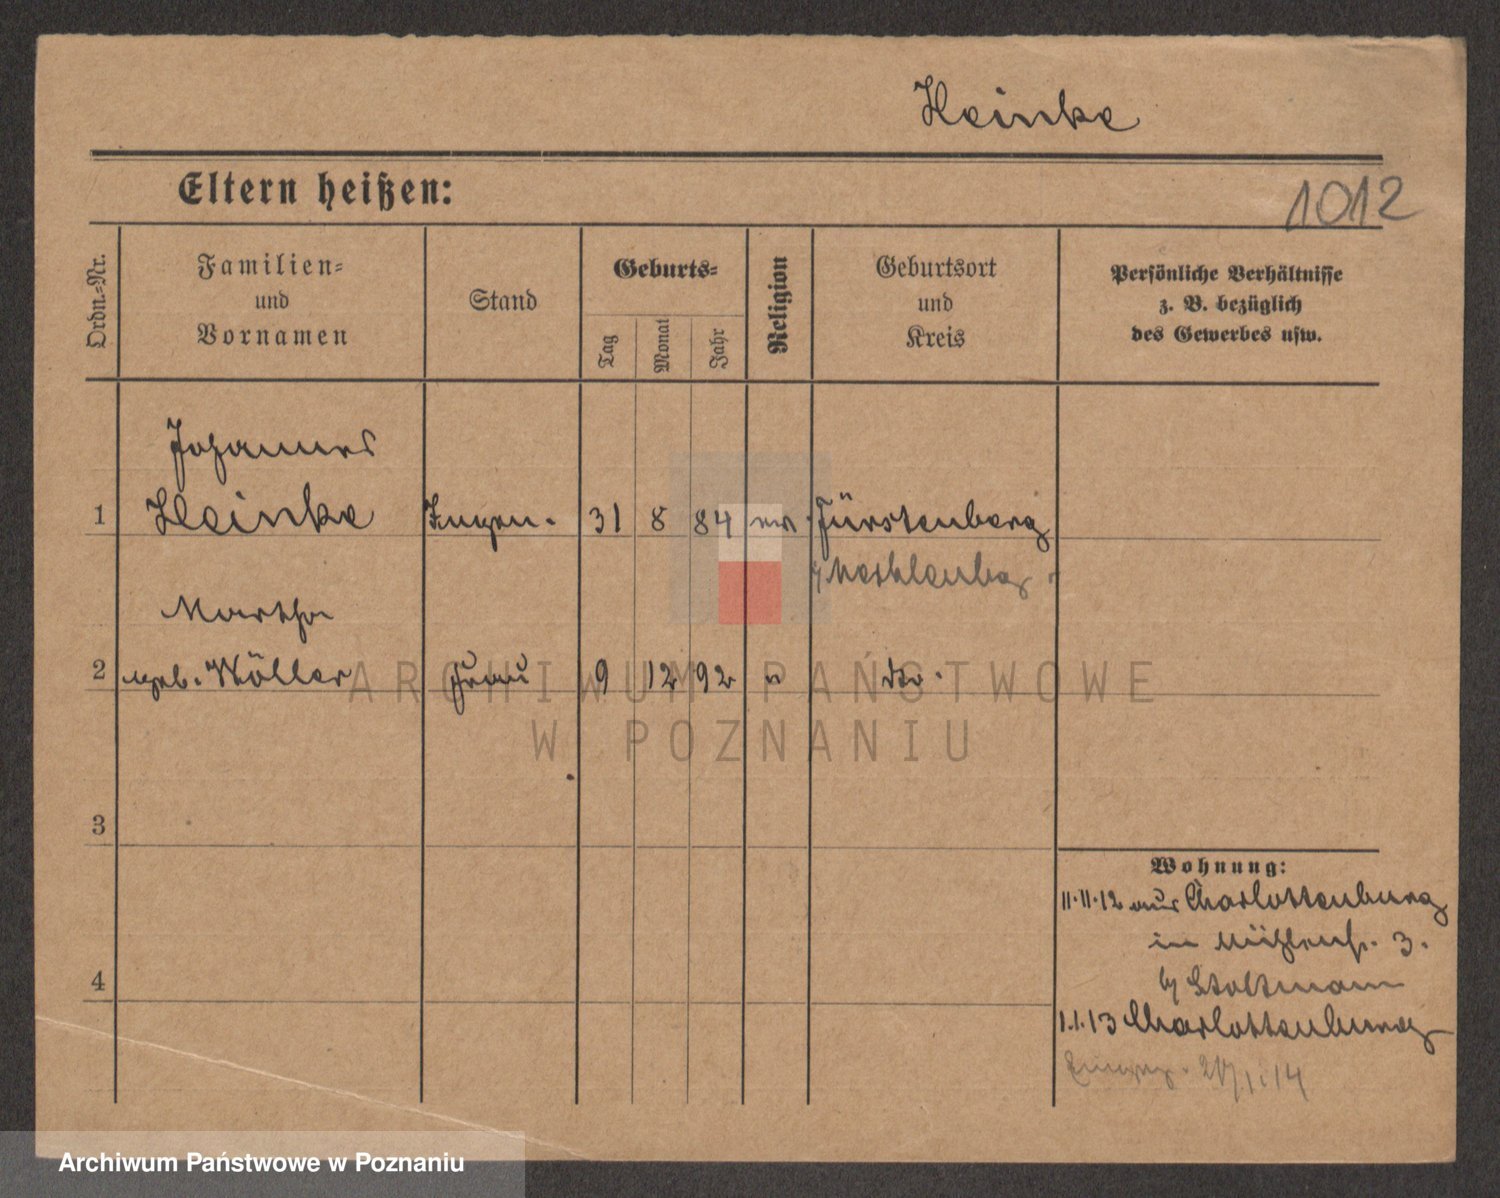 Heinke
Eltern heißen:
1012
Ordn.-Nr.
Familien-
und
Vornamen
Stand
Geburts-
Tag
Monat
Jahr
Religion
Geburtsort
und
Kreis
Persönliche Verhältnisse
z. B. bezüglich
des Gewerbes usw.
Johannes
1 Heinke Ingen. 31 8 84 ev Fürstenberg
Mecklenbg
Martha
2 geb. Wöller Frau 9 12 92 " do.
ARCHIWUM PAŃSTWOWE
W POZNANIU
3
Wohnung:
11.11.12 aus Charlottenburg
in Mühlenstr. 3.
4
b/ Stoltmann
1.1.13 Charlottenburg
14
Archiwum Państwowe w Poznaniu